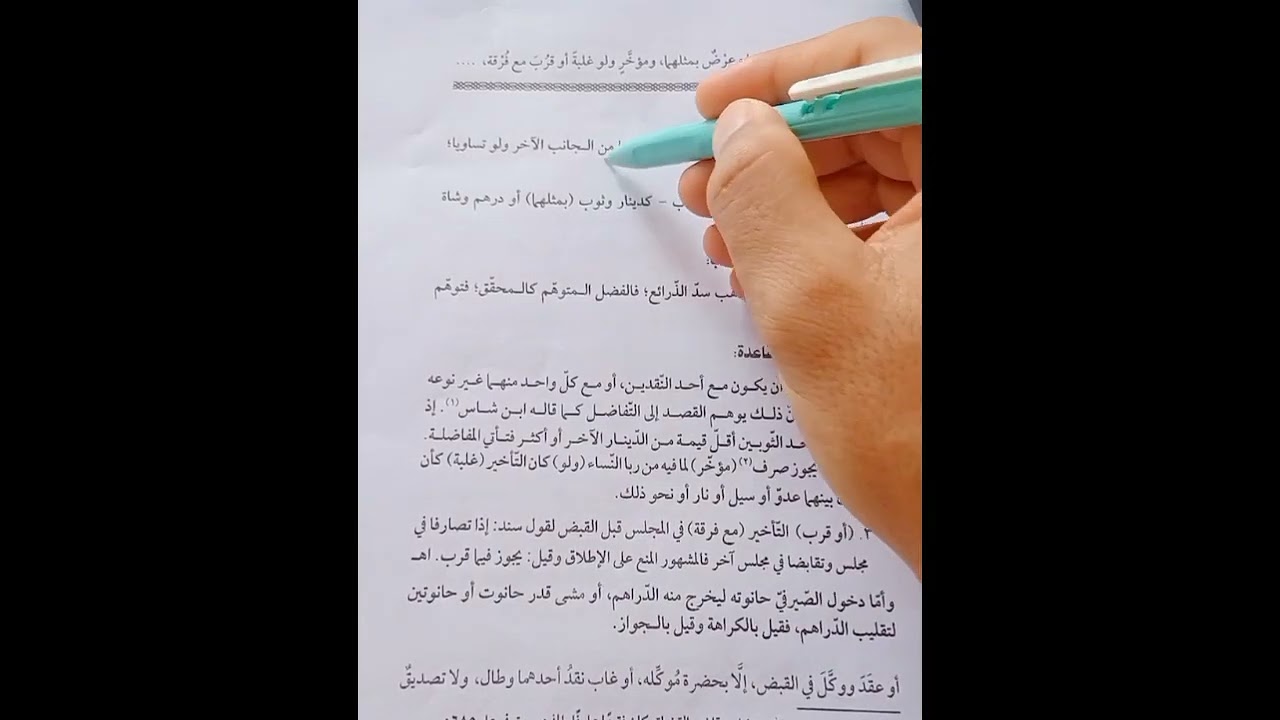 عرْضٌ بمثلهما، ومؤخَّرٍ ولو غلبةً أو قرُبَ مع فُرْقة، ....
من الـجانب الآخر ولو تساويا؛
ب – كدينار وثوب (بمثلهما) أو درهم وشاة
سدّ الذّرائع؛ فالفضل الـمتوهّم كالـمحقّق؛ فتوهّم
يكـون مـع أحـد النّقديـن، أو مـع كلّ واحـد منهـما غـير نوعـه
ذلـك يوهـم القصـد إلى التّفاضـل كـما قالـه ابـن شـاس(١). إذ
الثّوبـين أقـلّ قيمـة مـن الدّينـار الآخـر أو أكثـر فتـأتي المفاضلـة.
يجوز صرف(٢) (مؤخّر) لما فيه من ربا النّساء (ولو) كان التّأخير (غلبة) كأن
بينهما عدوّ أو سيل أو نار أو نحو ذلك.
(أو قرب) التّأخير (مع فرقة) في المجلس قبل القبض لقول سند: إذا تصارفا في
مجلس وتقابضا في مجلس آخر فالمشهور المنع على الإطلاق وقيل: يجوز فيما قرب. اهـ
وأمّا دخول الصّيرفيّ حانوته ليخرج منه الدّراهم، أو مشى قدر حانوت أو حانوتين
لتقليب الدّراهم، فقيل بالكراهة وقيل بالـجواز.
أو عقَدَ ووكَّلَ في القبض، إلَّا بحضرة مُوكِّله، أو غاب نقدُ أحدهما وطال، ولا تصديقٌ